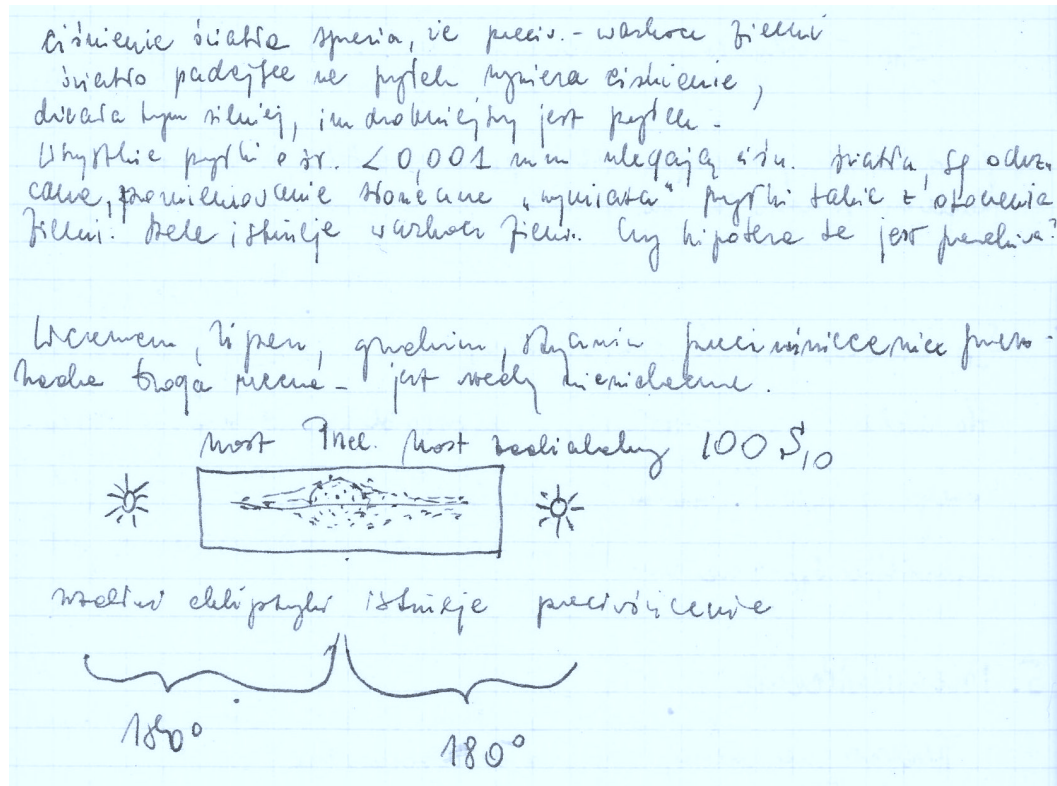 ciśnienie światła sprawia, że przeciw. - warkocz Ziemi
światło padające na pyłek wywiera ciśnienie,
działa tym silniej, im drobniejszy jest pyłek.
Wszystkie pyłki o śr. < 0,001 mm ulegają ciśn. światła, są odrzu-
cane, promieniowanie słoneczne „wymiata" pyłki także z otoczenia
Ziemi. istnieje warkocz Ziemi. Czy hipoteza ta jest prawdziwa?
W czerwcu, lipcu, grudniu, styczniu przeciwświecenie
droga mleczna - jest wtedy niewidoczne.
most most zodiakalny 100 S10
wzdłuż ekliptyki istnieje przeciwświecenie
180° 180°